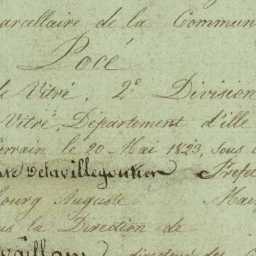 arcellaire de la Commun
Pocé
de Vitré, 2e Division
Vitré, Département d'ille
errain le 20 Mai 1823, sous
Delavillegontier Préfe
bourg Auguste Mai
us la Direction de
vaillon directeur des